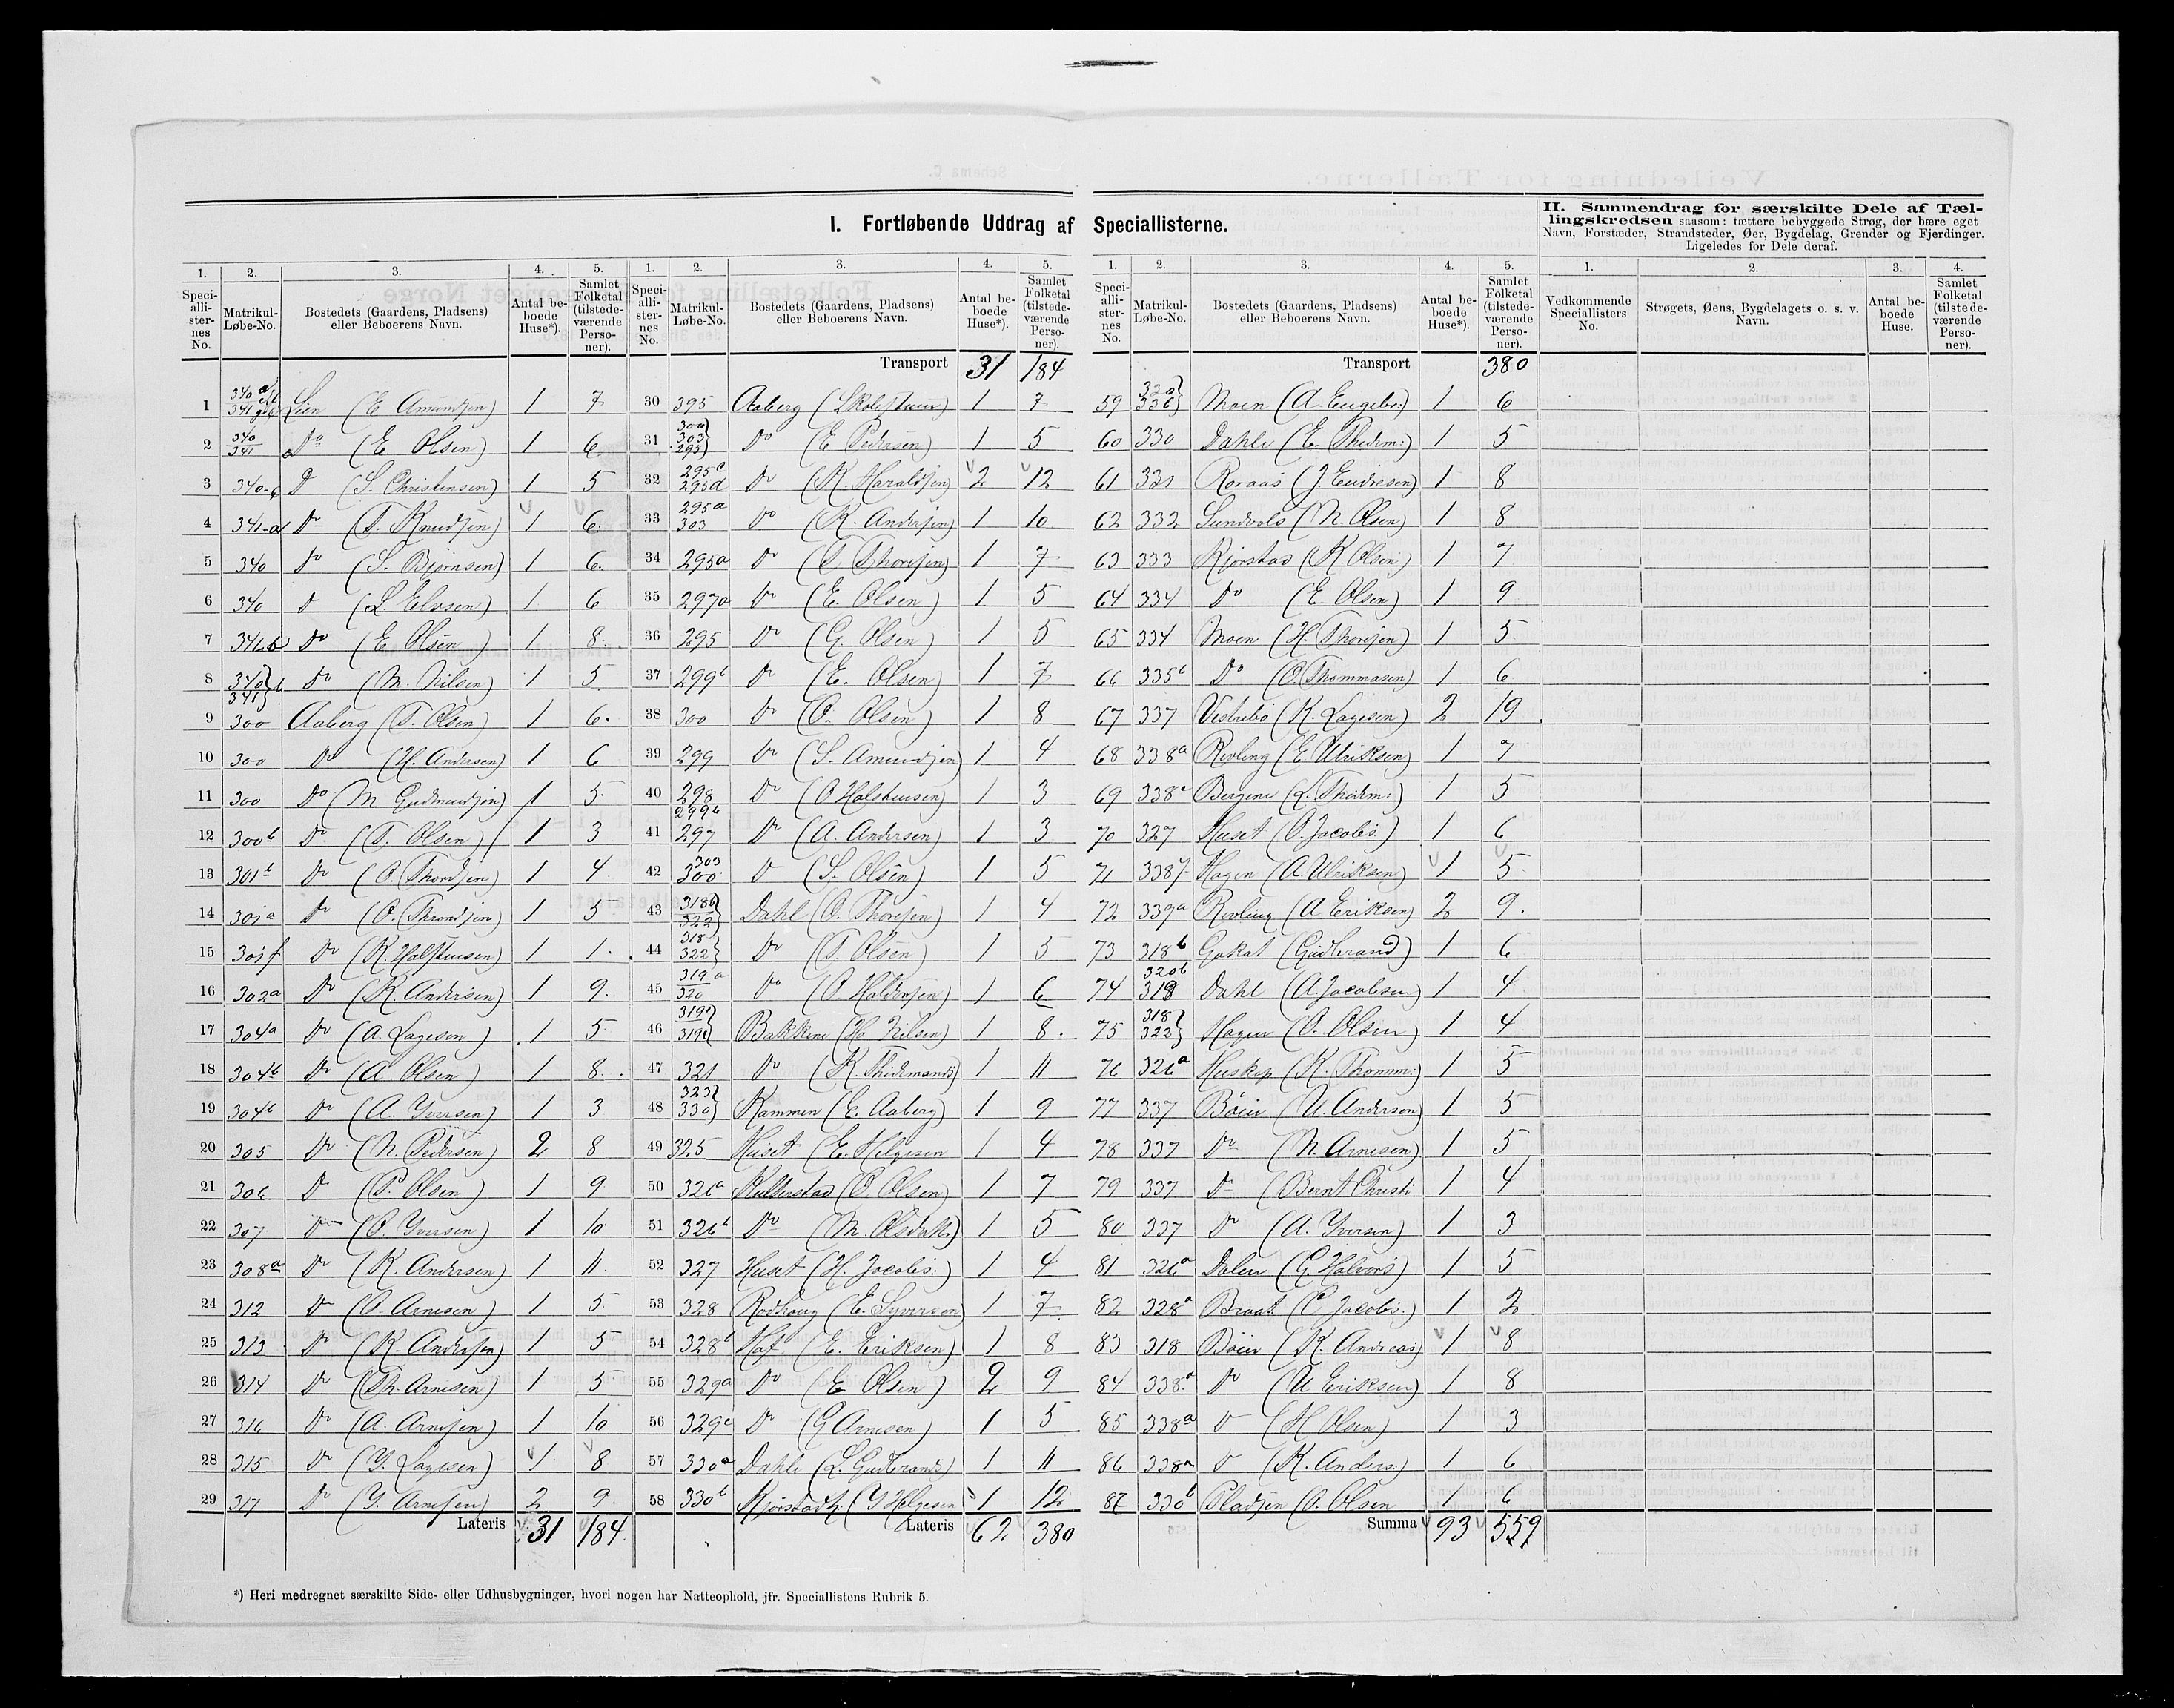 I. Fortløbende Uddrag af Speciallisterne.
II. Sammendrag for særskilte Dele af Tæl-
lingskredsen saasom: tættere bebyggede Strøg, der bære eget
Navn, Forstæder, Strandsteder, Øer, Bygdelag, Grender og Fjerdinger.
Ligeledes for Dele deraf.
1. 2. 3. 4. 5. 1. 2. 3. 4. 5. 1. 2. 3. 4. 5. 1. 2. 3. 4.
Speci-alli-ster-nes No. Matrikul-Løbe-No. Bostedets (Gaardens, Pladsens) eller Beboerens Navn. Antal be-boede Huse*). Samlet Folketal (tilstede-værende Perso-ner).
Speci-alli-ster-nes No. Matrikul-Løbe-No. Bostedets (Gaardens, Pladsens) eller Beboerens Navn. Antal be-boede Huse*). Samlet Folketal (tilstede-værende Perso-ner).
Speci-alli-ster-nes No. Matrikul-Løbe-No. Bostedets (Gaardens, Pladsens) eller Beboerens Navn. Antal be-boede Huse*). Samlet Folketal (tilstede-værende Perso-ner).
Vedkommende Speciallisters No. Strøgets, Øens, Bygdelagets o. s. v. Navn. Antal be-boede Huse. Samlet Folketal (tilstede-værende Perso-ner).
1 Lien (E Amundsen) 1 7
2 340 341 Do (E Olsen) 1 6
3 340-c D (S. Christensen) 1 5
4 341-d Do (T. Knudsen) 1 6
5 340 Do (S. Bjørnsen) 1 6
6 340 D (L. Elvsen) 1 6
7 341b Do (E. Olsen) 1 8
8 340 341 Do (M. Nilsen) 1 5
9 300 Aaberg (T. Olsen) 1 6
10 300 Do (H. Andersen) 1 6
11 300 Do (M Gudmundsen) 1 5
12 300b Do (T. Olsen) 1 3
13 301b Do (O. Thordsen) 1 4
14 301a Do (O. Throndsen) 1 5
15 301f Do (K. Halstensen) 1 1
16 302a Do (K. Andersen) 1 9
17 304a Do (A. Lagesen) 1 5
18 304b Do (A Olsen) 1 8
19 304b Do (A. Yversen) 1 3
20 305 Do (N. Pedersen) 2 8
21 306 D (P. Olsen) 1 9
22 307 Do (O. Yversen) 1 10
23 308a Do (K. Andersen) 1 11
24 312 Do (O. Arnesen) 1 5
25 313 Do (K. Andersen) 1 5
26 314 Do (Th. Arnesen) 1 5
27 316 Do (A. Arnesen) 1 10
28 315 Do (Y. Lagesen) 1 8
29 317 Do (Y. Arnesen) 2 9
Lateris 31 184
Transport 31 184
30 395 Aaberg 1 7
31 300 303 295 Do (E Pedersen) 1 5
32 295c 295d Do (K. Haraldsen) 2 12
33 295a 303 Do (K. Andersen) 1 10
34 295a Do (T. Thoresen) 1 7
35 297a Do (E. Olsen) 1 5
36 295 Do (G. Olsen) 1 5
37 299b Do (E. Olsen) 1 7
38 300 Do (O. Olsen) 1 8
39 299 Do (S. Amundsen) 1 4
40 298 Do (O Halstensen) 1 3
41 299b 297 Do (A. Andersen) 1 3
42 303 300 D (S. Olsen) 1 5
43 318b 322 Dahl (O. Thoresen) 1 4
44 318 322 Do (T. Olsen) 1 5
45 319a 320 Do (O Haldorsen) 1 6
46 Bakkene (H. Nilsen) 1 8
47 321 Do (K. Thidemands) 1 11
48 323 330 Kammen (E. Aaberg) 1 9
49 325 Huset (E. Helgesen 1 4
50 326a Kulterstad (O. Olsen) 1 7
51 326b Do 1 5
52 327 Huset (H. Jacobs:) 1 4
53 328 Rodhoug (E. Syversen) 1 7
54 328b Hof (E. Eriksen) 1 8
55 329a Do (E Olsen) 2 9
56 329c Do (G Arnesen) 1 5
57 330a Dahle (L. Gudbrands) 1 11
58 330b (Y Helgesen 1 12
Lateris 62 380
Transport 380
59 320 336 Moen (A Engebr:) 1 6
60 330 Dahle (E. Thidem:) 1 5
61 331 Roraas (J. Endresen) 1 8
62 332 Sundvold (N. Olsen) 1 8
63 333 Kjørstad (K Olsen) 1 7
64 334 Do (E. Olsen) 1 9
65 334 Moen (H. Thoresen) 1 5
66 335b Do (O. Thommasen) 1 6
67 337 Vestrebø (K. Lagesen) 2 19
68 338a Revling (E Ulriksen) 1 7
69 338a Bergene (L. Thidem:) 1 5
70 327 Huset (O. Jacobs.) 1 6
71 338f Hagen (A Ulriksen) 1 5
72 339a Revling (A Eriksen) 2 9
73 318b (Gudbrand) 1 6
74 320b 318 Dahl (A. Jacobsen) 1 4
75 318 322 Hagen (O. Olsen) 1 4
76 326a Huskop (K. Thomm:) 1 5
77 337 Böen (A. Andersen) 1 5
78 337 Do (N. Arnesen) 1 5
79 337 Do (Bernt Christi 1 4
80 337 Do (A. Yversen) 1 3
81 326a Dalen (G. Halvors) 1 5
82 328a Braat (C Jacobs.) 1 2
83 318 Böen (K. Andreas) 1 8
84 338a Do (A Eriksen) 1 8
85 338a D (H Olsen) 1 3
86 338a D (K. Anders:) 1 6
87 330b Pladsen (O. Olsen 1 6
Summa 93 559
*) Heri medregnet særskilte Side- eller Udhusbygninger, hvori nogen har Natteophold, jfr. Speciallistens Rubrik 5.